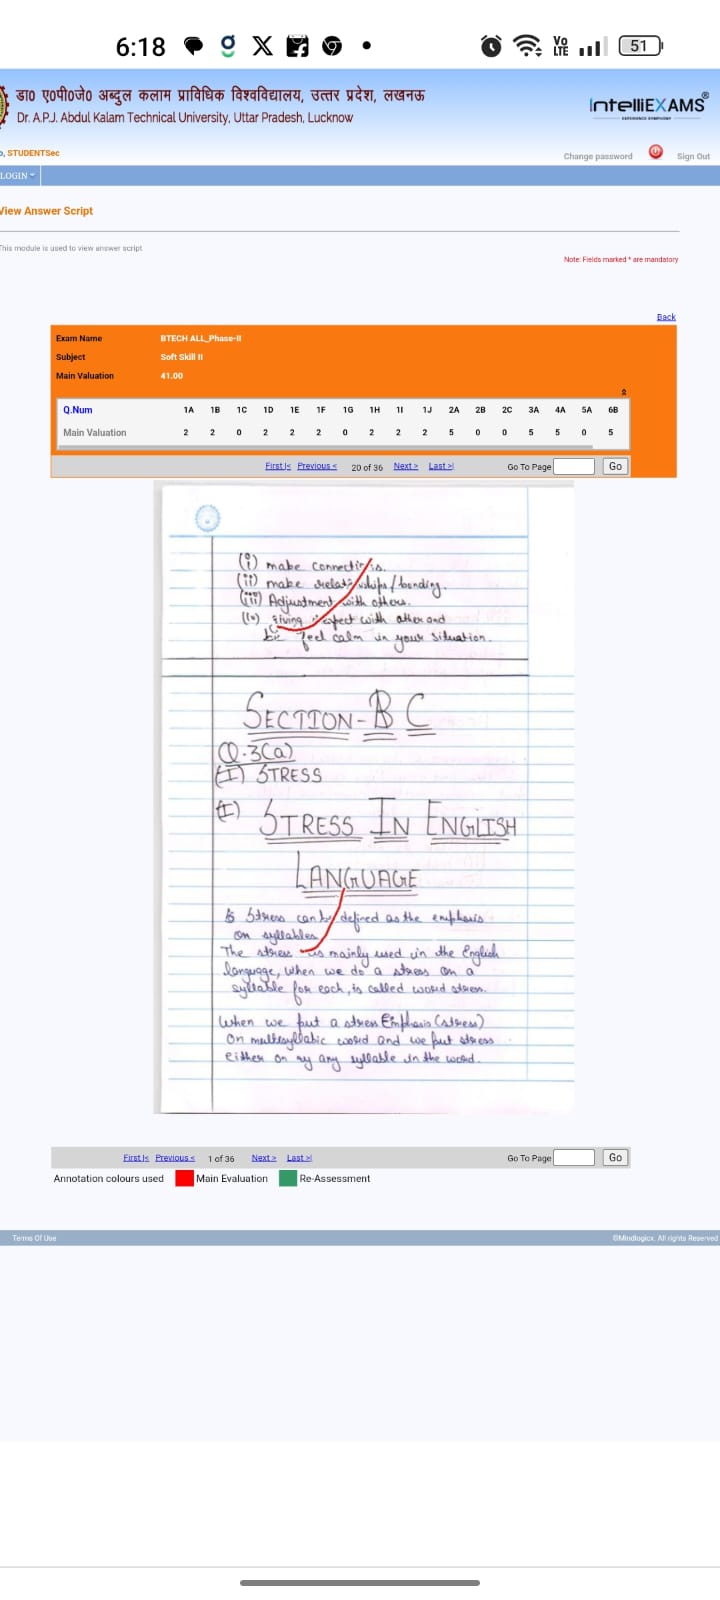 6:18
Vo LTE
51
डा० ए०पी०जे० अब्दुल कलाम प्राविधिक विश्वविद्यालय, उत्तर प्रदेश, लखनऊ
Dr. A.P.J. Abdul Kalam Technical University, Uttar Pradesh, Lucknow
IntelliEXAMS®
o, STUDENTSec
Change password Sign Out
LOGIN
View Answer Script
This module is used to view answer script
Note: Fields marked * are mandatory
Back
Exam Name BTECH ALL_Phase-II
Subject Soft Skill II
Main Valuation 41.00
Q.Num 1A 1B 1C 1D 1E 1F 1G 1H 1I 1J 2A 2B 2C 3A 4A 5A 6B
Main Valuation 2 2 0 2 2 2 0 2 2 2 5 0 0 5 5 0 5
First |< Previous < 20 of 36 Next > Last >| Go To Page Go
(i) make connection is.
(ii) make relationships / bonding.
(iii) Adjustment with others.
(iv) giving respect with other and
feel calm in your situation.
SECTION - B C
Q.3(a)
(I) STRESS
(I) STRESS IN ENGLISH
LANGUAGE
Stress can be defined as the emphasis
on syllables.
The stress is mainly used in the English
language, when we do a stress on a
syllable for each, is called word stress.
When we put a stress Emphasis (stress)
on multisyllabic word and we put stress
either on any syllable in the word.
First |< Previous < 1 of 36 Next > Last >| Go To Page Go
Annotation colours used Main Evaluation Re-Assessment
Terms Of Use ©Mindlogicx. All rights Reserved